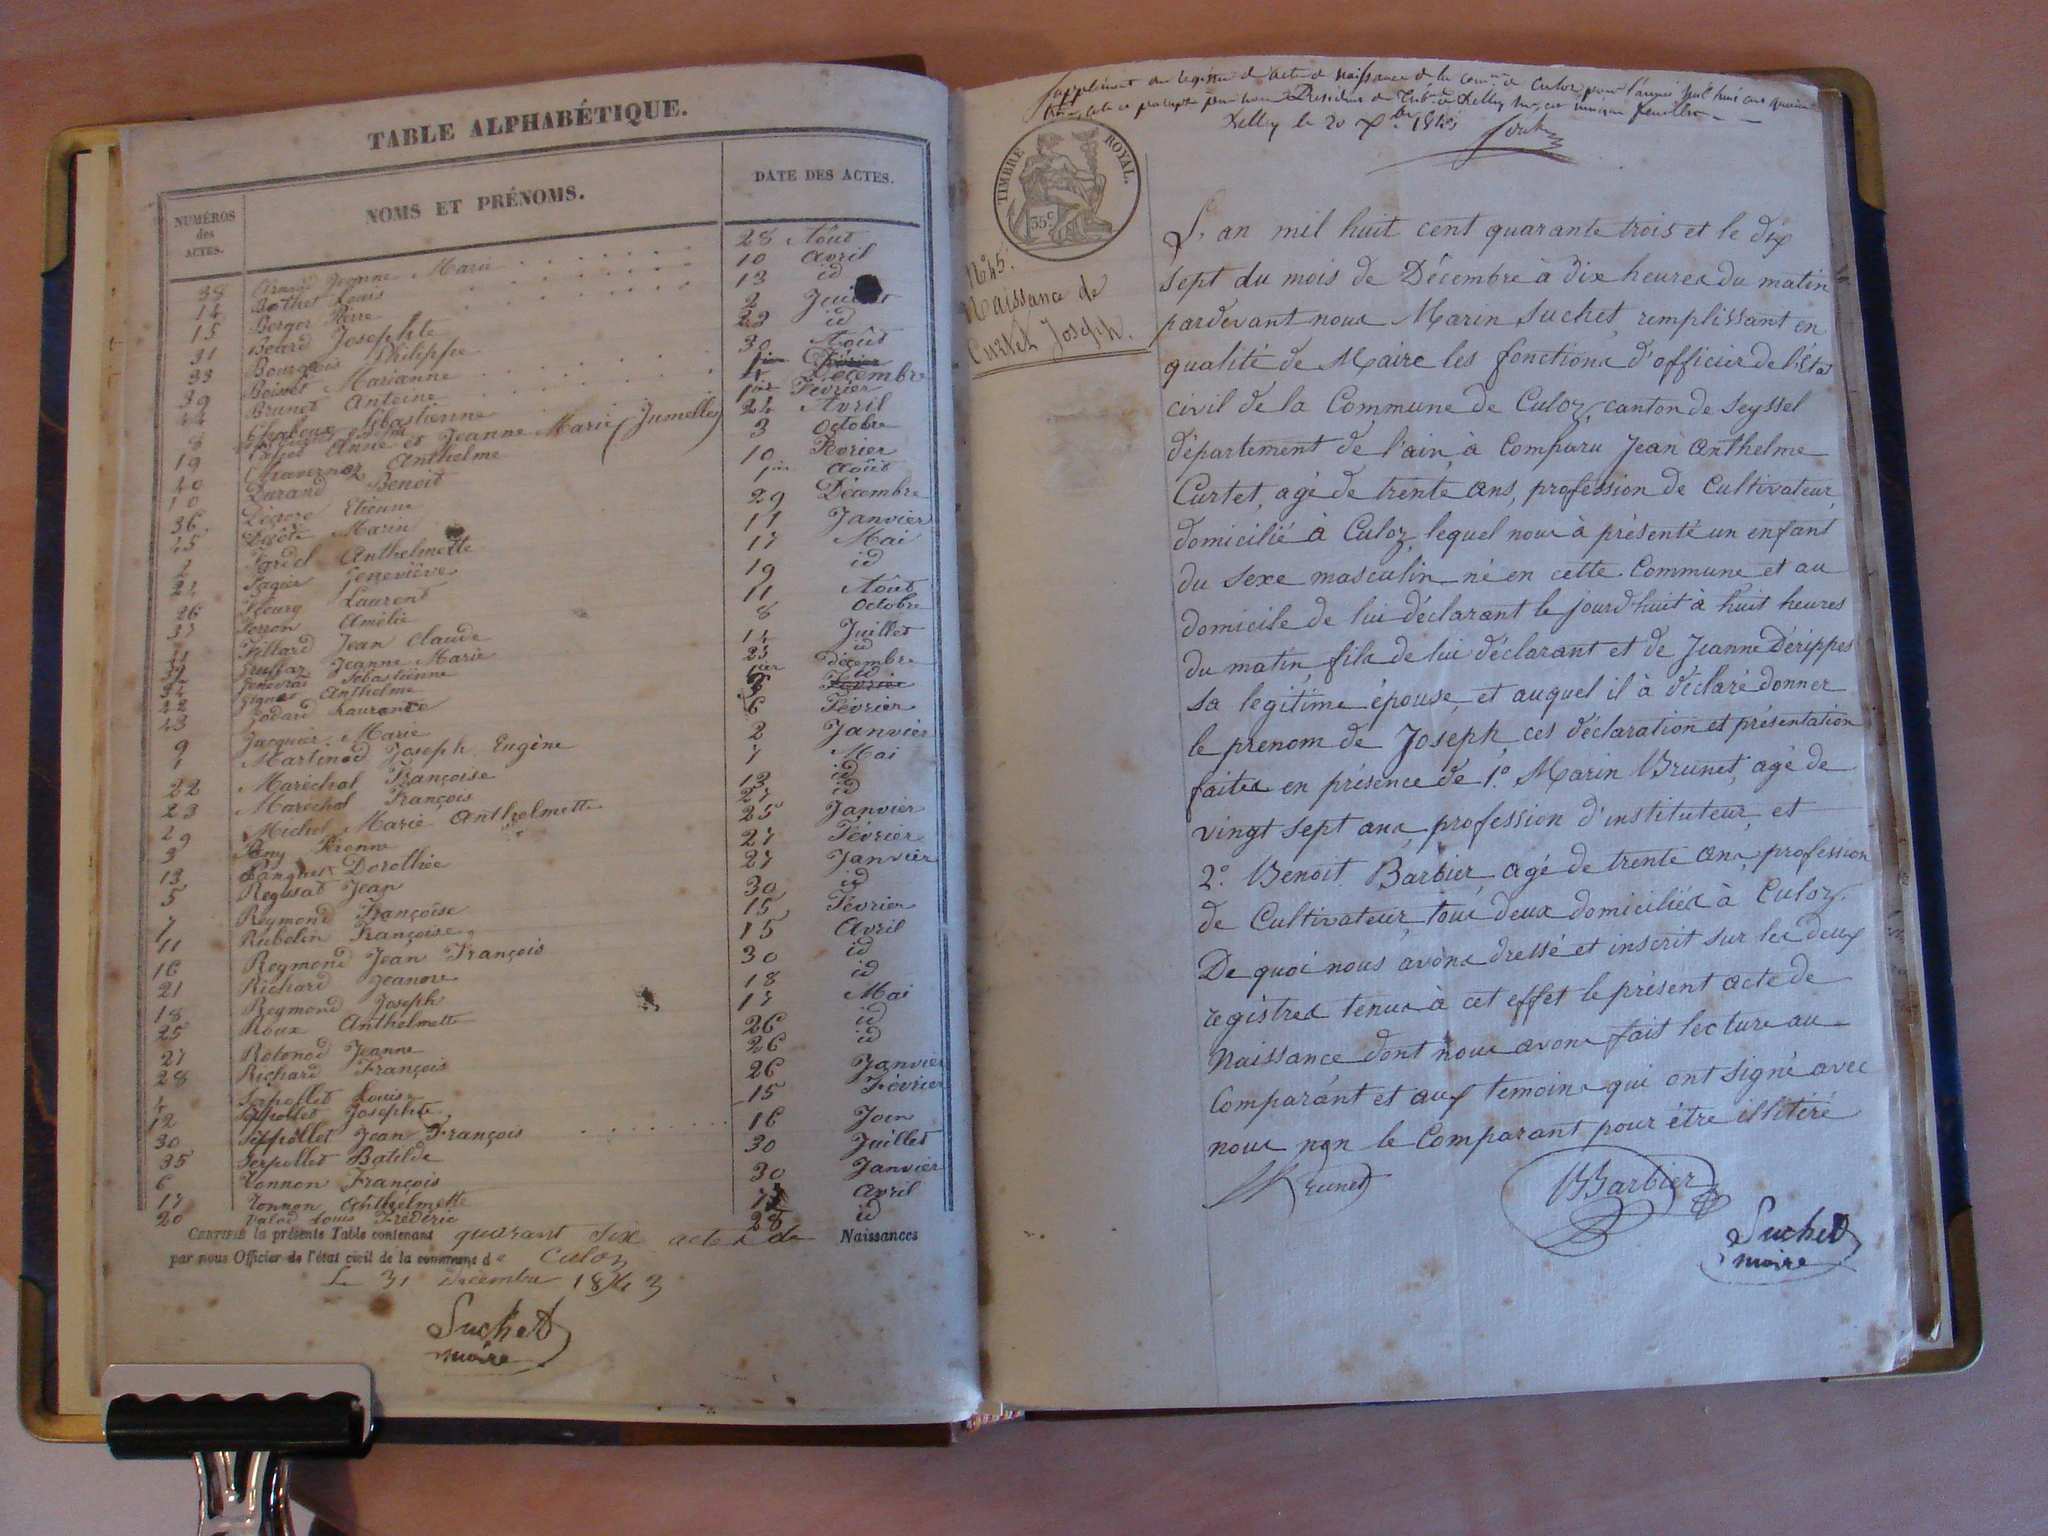 TABLE ALPHABÉTIQUE.
NUMÉROS des ACTES.
NOMS ET PRÉNOMS.
DATE DES ACTES.
38 Jeanne Marie 28 Août
14 Bothet Louis 10 Avril
15 Berger Pierre 13 id
31 Béard Josephte 2 Juillet
33 Bourgeois Philippe 29 id
39 Boisset Marianne 30 Août
44 Brunet Antoine Décembre
8 Chaboux Sébastienne 1er Février
19 Anne et Jeanne Marie (Jumelles) 24 Avril
40 Chavernoz Anthelme 3 Octobre
10 Durand Benoit 10 Février
36 Etienne 1er Août
45 Marin 29 Décembre
2 Anthelmette 11 Janvier
24 Geneviève 17 Mai
26 Fleury Laurent 19 id
37 Ferron Amélie 11 Août
41 Jean Claude 8 Octobre
Jeanne Marie 14 Juillet
Sébastienne 25 id
42 Anthelme 1er décembre
43 Jodard Laurence id
9 Jacquier Marie 6 Février
1 Martinod Joseph Eugène 2 Janvier
22 Maréchal Françoise 7 Mai
23 Maréchal François 13 id
29 Michel Marie Anthelmette 27 id
3 Pierre 25 Janvier
13 Dorothée 27 Février
5 Regusat Jean 27 Janvier
7 Reymond Françoise 30 id
11 Rubelin Françoise 15 Février
16 Reymond Jean François 15 Avril
21 Richard Jeanne 30 id
18 Reymond Joseph 18 id
25 Roux Anthelmette 17 Mai
27 Rotonod Jeanne 26 id
28 Richard François 26 id
4 Serpollet Louise 26 Janvier
12 Serpollet Josephte 15 Février
30 Serpollet Jean François 16 Juin
35 Serpollet Batilde 30 Juillet
6 Tonnon François 30 Janvier
17 Tonnon Anthelmette Avril
20 Valod Louis Frédéric 28 id
CERTIFIÉ la présente Table contenant quarant six actes de Naissances
par nous Officier de l'état civil de la commune de Culoz
Le 31 décembre 1843
Suchet
maire
Supplément au registre d'acte de naissance de la comne de Culoz pour l'année mil huit cent quarante
trois, coté et paraphé par nous Président du Trib. de Belley sur cet unique feuillet.
Belley le 20 Xbre 1843
TIMBRE ROYAL.
35 c
N° 45.
Naissance de
Curtet Joseph.
L'an mil huit cent quarante trois et le dix
sept du mois de Décembre à dix heures du matin
pardevant nous Marin Suchet, remplissant en
qualité de Maire les fonctions d'officier de l'État
civil de la Commune de Culoz, canton de Seyssel
département de l'ain, à Comparu Jean Anthelme
Curtet, agé de trente ans, profession de Cultivateur
domicilié à Culoz, lequel nous à présenté un enfant
du sexe masculin né en cette Commune et au
domicile de lui déclarant le jourd'huit à huit heures
du matin, fils de lui déclarant et de Jeanne Dérippes
sa legitime épouse, et auquel il à déclaré donner
le prenom de Joseph, ces déclaration et présentation
faites en présence de 1.° Marin Brunet, agé de
vingt sept ans profession d'instituteur, et
2.° Benoit Barbier agé de trente ans, profession
de Cultivateur, tous deux domiciliés à Culoz.
De quoi nous avons dressé et inscrit sur les deux
registres tenus à cet effet le présent acte de
Naissance dont nous avons fait lecture au
Comparant et aux temoins qui ont signé avec
nous non le Comparant pour être illitéré
Brunet
BBarbier
Suchet
maire